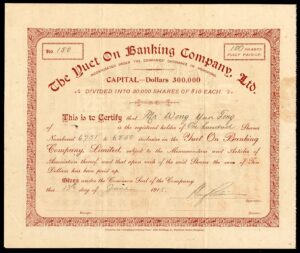 No 150
100 SHARES
FULLY PAID UP.
The Yuet On Banking Company, Ltd.
INCORPORATED UNDER THE COMPANIES ORDINANCES OF HONGKONG
CAPITAL—Dollars 300,000
DIVIDED INTO 30,000 SHARES OF $10 EACH.
This is to Certify that Mr Wong Yuen Ting
is the registered holder of One hundred Shares
Numbered 6701 to 6800 inclusive in the Yuet On Banking
Company, Limited, subject to the Memorandum and Articles of
Association thereof and that upon each of the said Shares the sum of Ten
Dollars has been paid up.
Given under the Common Seal of the Company
this day of 1915